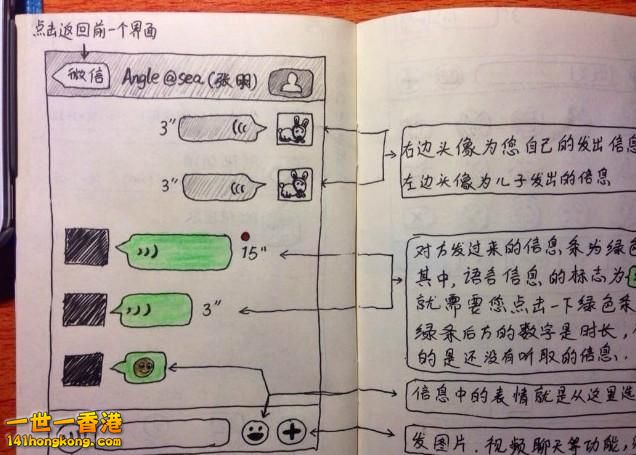 点击返回前一个界面
微信 Angle@sea(张明)
3"
3"
15"
3"
右边头像为您自己的发出信息
左边头像为儿子发出的信息
对方发过来的信息条为绿色
其中,语言信息的标志为
就需要您点击一下绿色条
绿条后方的数字是时长,
的是还没有听取的信息.
信息中的表情就是从这里选
发图片.视频聊天等功能,
一世一香港
141hongkong.com